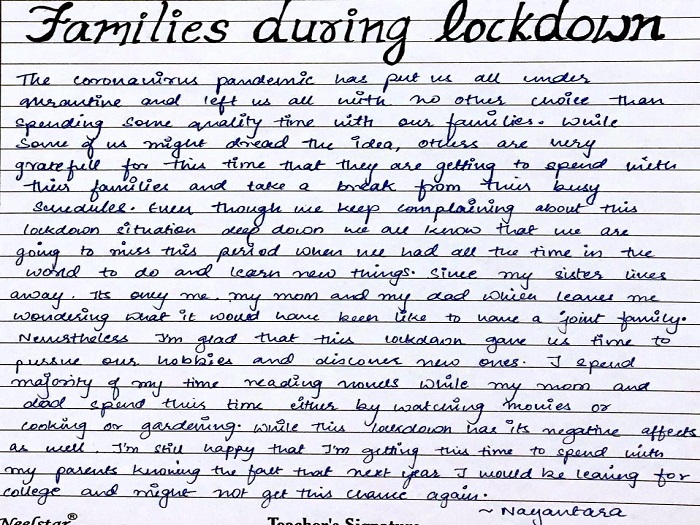 Families during lockdown
The coronavirus pandemic has put us all under
qurantine and left us all with no other choice than
spending some quality time with our families. While
some of us might dread the idea, others are very
gratefull for this time that they are getting to spend with
their families and take a break from their busy
schedules. Even though we keep complaining about this
lockdown situation deep down we all know that we are
going to miss this period when we had all the time in the
world to do and learn new things. Since my sister lives
away. Its only me, my mom and my dad which leaves me
wondering what it would have been like to have a joint family.
Nevertheless I'm glad that this lockdown gave us time to
pursue our hobbies and discover new ones. I spend
majority of my time reading novels while my mom and
dad spend this time either by watching movies or
cooking or gardening. While this lockdown has its negative affects
as well. I'm still happy that I'm getting this time to spend with
my parents knowing the fact that next year I would be leaving for
college and might not get this chance again.
~ Nayantara
Neelstar® Teacher's Signature